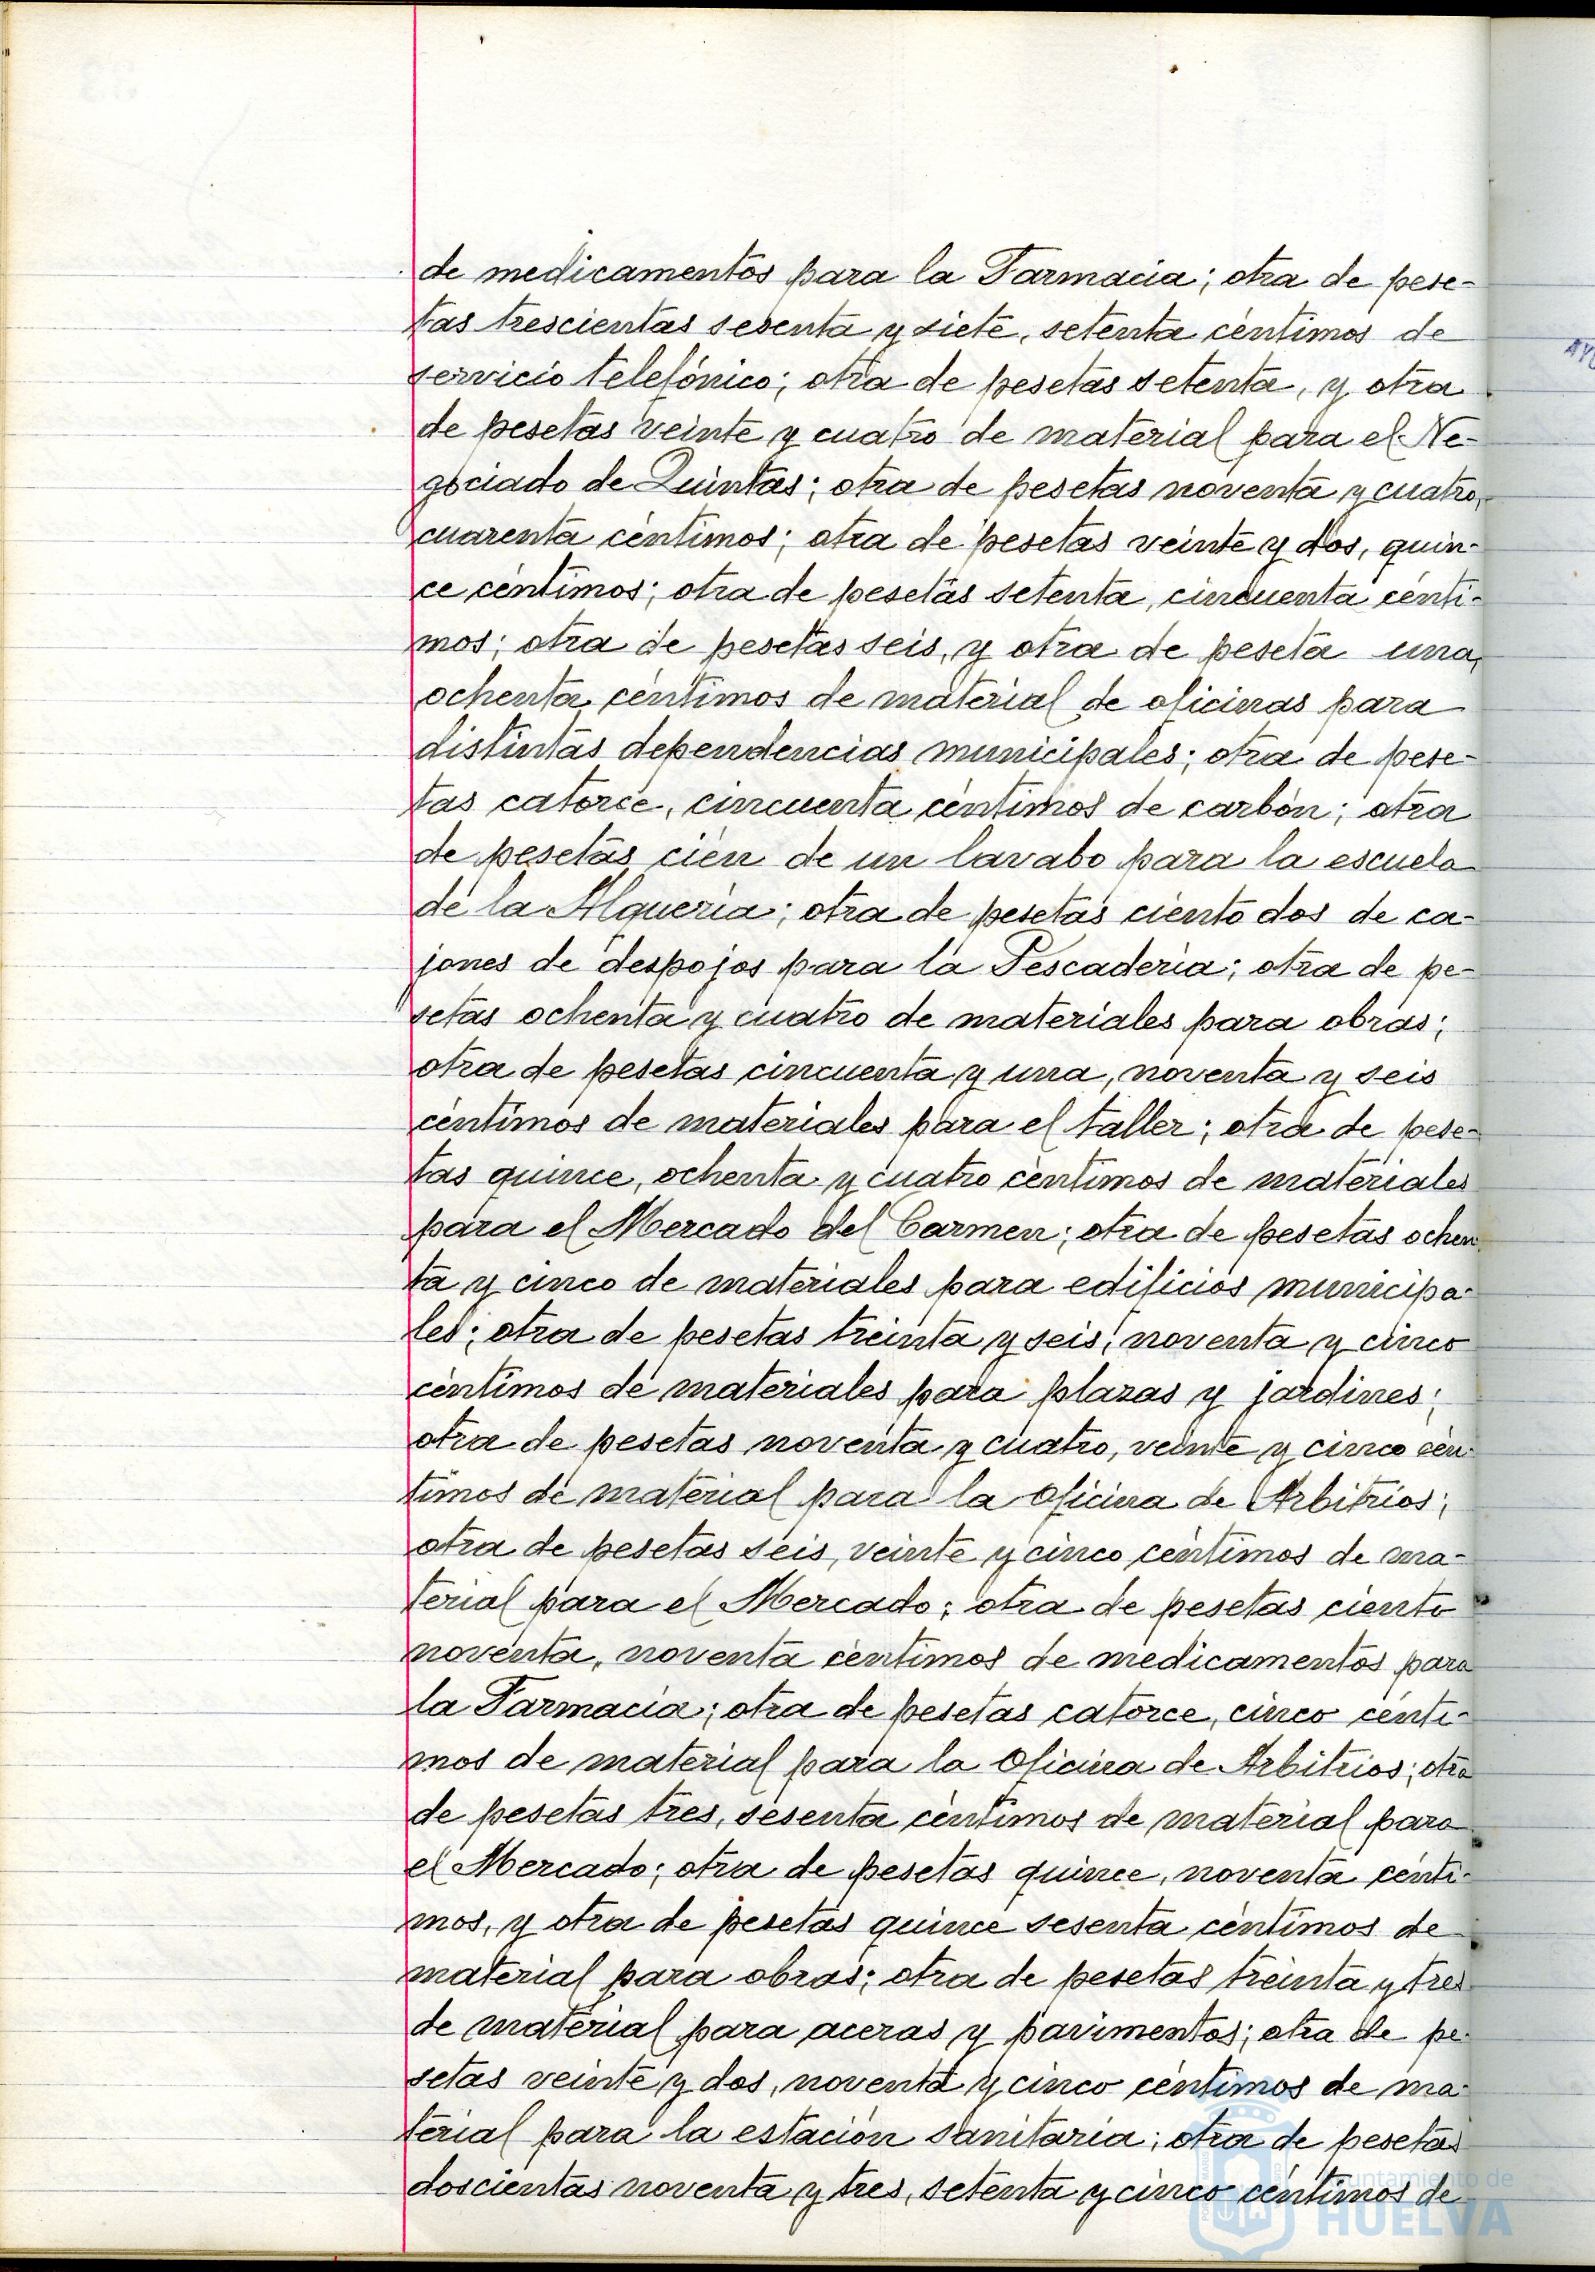 de medicamentos para la Farmacia; otra de pese-
tas trescientas sesenta y siete, setenta céntimos de
servicio telefónico; otra de pesetas setenta, y otra
de pesetas veinte y cuatro de material para el Ne-
gociado de Quintas; otra de pesetas noventa y cuatro,
cuarenta céntimos; otra de pesetas veinte y dos, quin-
ce céntimos; otra de pesetas setenta, cincuenta cénti-
mos; otra de pesetas seis, y otra de peseta una,
ochenta céntimos de material de oficinas para
distintas dependencias municipales; otra de pese-
tas catorce, cincuenta céntimos de carbón; otra
de pesetas cien de un lavabo para la escuela
de la Alquería; otra de pesetas ciento dos de ca-
jones de despojos para la Pescadería; otra de pe-
setas ochenta y cuatro de materiales para obras;
otra de pesetas cincuenta y una, noventa y seis
céntimos de materiales para el taller; otra de pese-
tas quince, ochenta y cuatro céntimos de materiales
para el Mercado del Carmen; otra de pesetas ochen
ta y cinco de materiales para edificios municipa-
les; otra de pesetas treinta y seis, noventa y cinco
céntimos de materiales para plazas y jardines;
otra de pesetas noventa y cuatro, veinte y cinco cén-
timos de material para la Oficina de Arbitrios;
otra de pesetas seis, veinte y cinco céntimos de ma-
terial para el Mercado; otra de pesetas ciento
noventa, noventa céntimos de medicamentos para
la Farmacia; otra de pesetas catorce, cinco cénti-
mos de material para la Oficina de Arbitrios; otra
de pesetas tres, sesenta céntimos de material para
el Mercado; otra de pesetas quince, noventa cénti-
mos, y otra de pesetas quince sesenta céntimos de
material para obras; otra de pesetas treinta y tres
de material para aceras y pavimentos; otra de pe-
setas veinte y dos, noventa y cinco céntimos de ma-
terial para la estación sanitaria; otra de pesetas
doscientas noventa y tres, setenta y cinco céntimos de
Ayuntamiento de
HUELVA